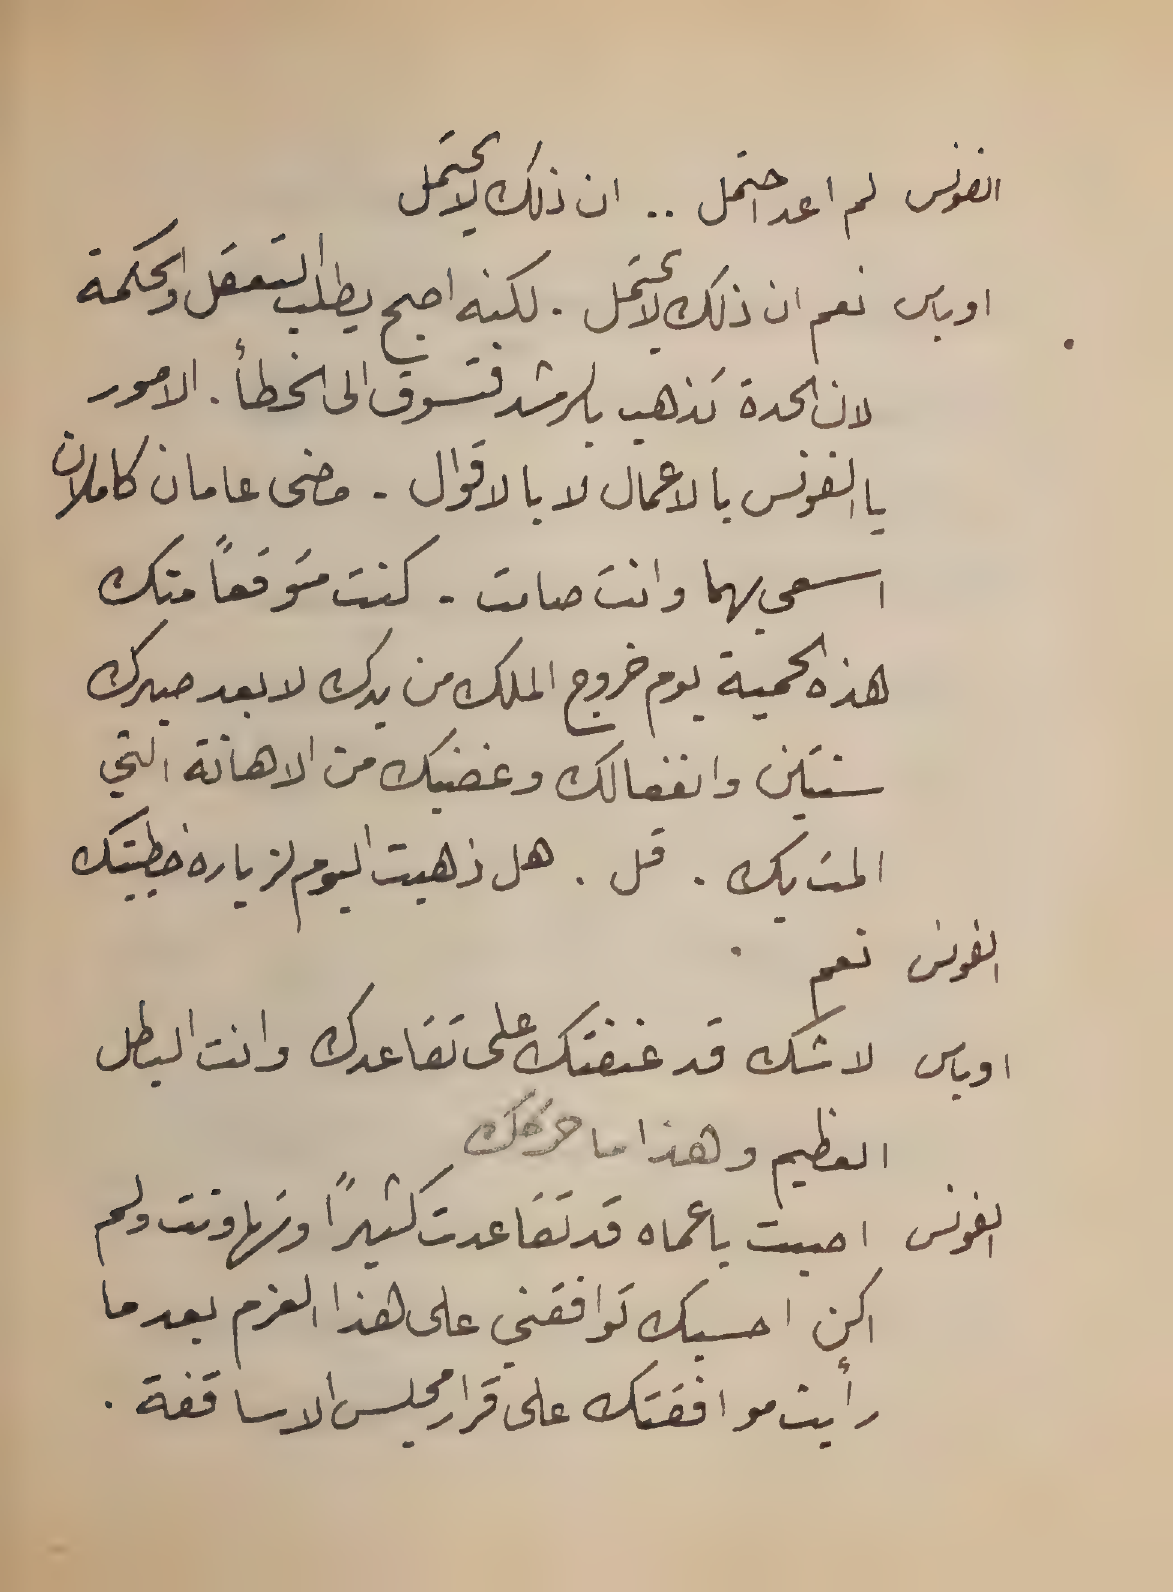 الفونس لم اعد احتمل .. ان ذلك لا يحتمل
اوباس نعم ان ذلك لا يحتمل . لكنه اصبح يطلب التعقل والحكمة
لان الحدة تذهب بالرشد فتسوق الى الخطأ . الامور
يا الفونس بالاعمال لا بالاقوال - مضى عامان كاملان
اسعى بهما وانت صامت - كنت متوقعاً منك
هذه الحمية يوم خروج الملك من يدك لا بعد صبرك
سنتين وانفعالك وغضبك من الاهانة التي
المت بك . قل . هل ذهبت اليوم لزياره خطيبتك
الفونس نعم .
اوباس لا شك قد عنفتك على تقاعدك وانت البطل
العظيم وهذا ما حركك
الفونس اصبت ياعماه قد تقاعدت كثيرًا وتهاونت ولم
اكن احسبك توافقني على هذا العزم بعد ما
رأيت موافقتك على قرار مجلس الاساقفة .